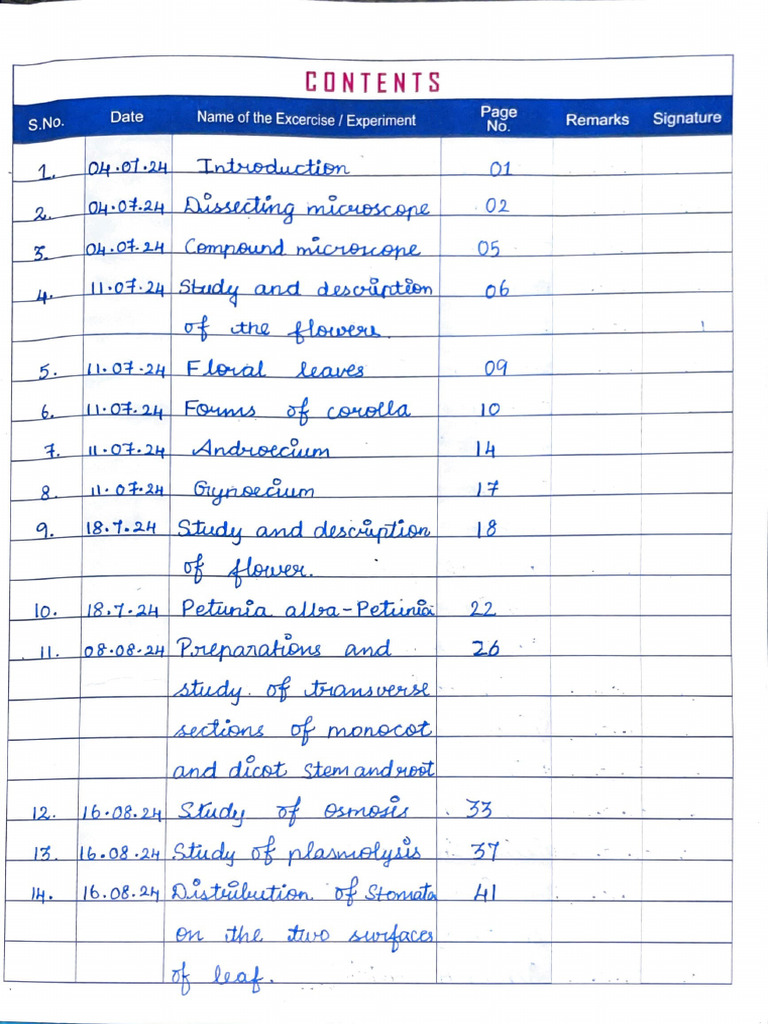 CONTENTS
S.No. Date Name of the Excercise / Experiment Page No. Remarks Signature
1. 04.07.24 Introduction 01
2. 04.07.24 Dissecting microscope 02
3. 04.07.24 Compound microscope 05
4. 11.07.24 Study and description 06
of the flowers
5. 11.07.24 Floral leaves 09
6. 11.07.24 Forms of corolla 10
7. 11.07.24 Androecium 14
8. 11.07.24 Gynoecium 17
9. 18.7.24 Study and description 18
of flower.
10. 18.7.24 Petunia alba-Petunia 22
11. 08.08.24 Preparations and 26
study of transverse
sections of monocot
and dicot stem and root
12. 16.08.24 Study of osmosis 33
13. 16.08.24 Study of plasmolysis 37
14. 16.08.24 Distribution of Stomata 41
on the two surfaces
of leaf.